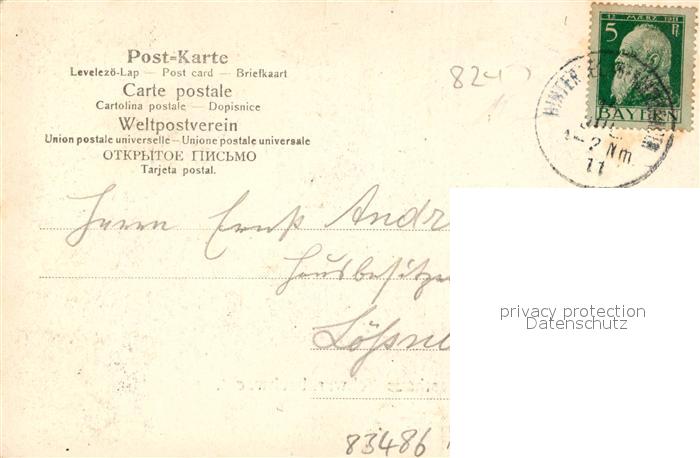 Post-Karte
Levelező-Lap — Post card — Briefkaart
Carte postale
Cartolina postale — Dopisnice
Weltpostverein
Union postale universelle — Unione postale universale
ОТКРЫТОЕ ПИСЬМО
Tarjeta postal.
12. MÄRZ 1911
5 Pf
BAYERN
HINTER
1-2 Nm
11
Herrn Ernst Andr
Hausbesitze
Lößn
privacy protection
Datenschutz
83486